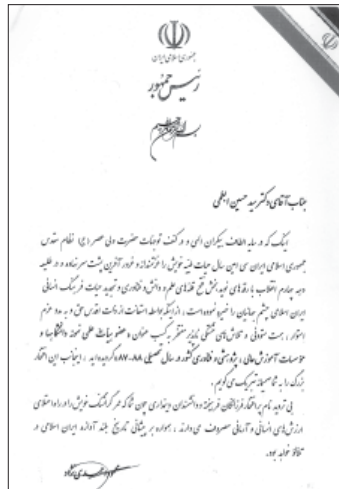 جمهوری اسلامی ایران
رئیس جمهور
بسم الله الرحمن الرحیم
جناب آقای دکتر سید حسین
اینک که در سایه الطاف بیکران الهی و در کنف توجهات حضرت ولی عصر (عج) نظام مقدس
جمهوری اسلامی ایران سی امین سال حیات طیبه خویش را پشت سر نهاده و در طلیعه
دهه چهارم انقلاب بارقه های نوید بخش فتح قله های علم و دانش و فناوری و تجدید حیات فرهنگ انسانی
ایران اسلامی چشم جهانیان را خیره نموده است، از اینکه با استعانت از ذات اقدس حق و به مدد عزم
استوار، همت ستودنی و تلاش های خستگی ناپذیر مفتخر به کسب عنوان عضو هیأت علمی نمونه دانشگاه‌ها و
مؤسسات آموزش عالی، پژوهشی و فناوری کشور در سال تحصیلی ۸۸-۸۷ گردیده اید، اینجانب این افتخار
بزرگ را به شما صمیمانه تبریک می گویم.
بی تردید نام پر افتخار فرزانگان فرهیخته و دانشمندان دینداری چون شما که عمر گرانسنگ خویش را در راه اعتلای
ارزش های انسانی و آرمانی مصروف می دارند، همواره بر پیشانی تاریخ بلند آوازه ایران اسلامی در
تلألؤ خواهد بود.